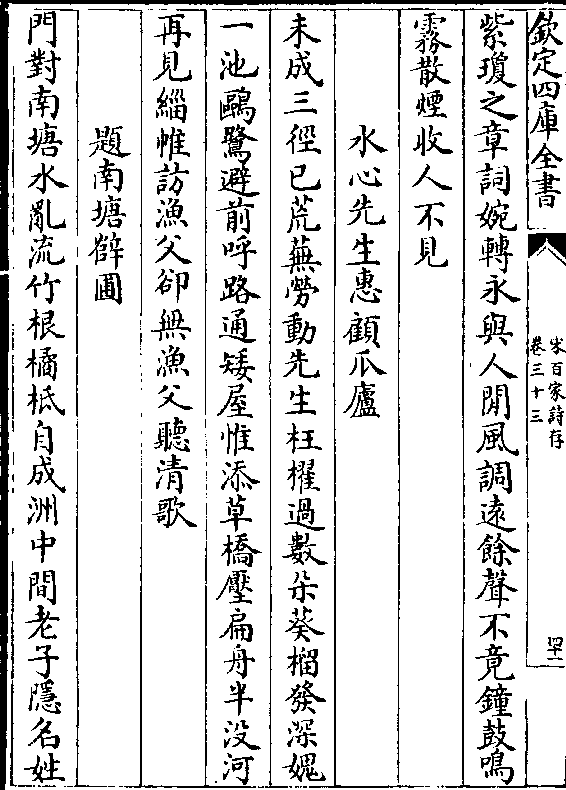 欽定四庫全書
宋百家詩存
卷三十三
四十一
紫瓊之章詞婉轉永與人閒風調遠餘聲不竟鐘鼓鳴
霧散煙收人不見
水心先生惠顧瓜廬
未成三徑已荒蕪勞動先生枉櫂過數朶葵榴發深媿
一池鷗鷺避前呼路通矮屋惟添草橋壓扁舟半没河
再見緇帷訪漁父卻無漁父聽清歌
題南塘薛圃
門對南塘水亂流竹根橘柢自成洲中間老子隱名姓